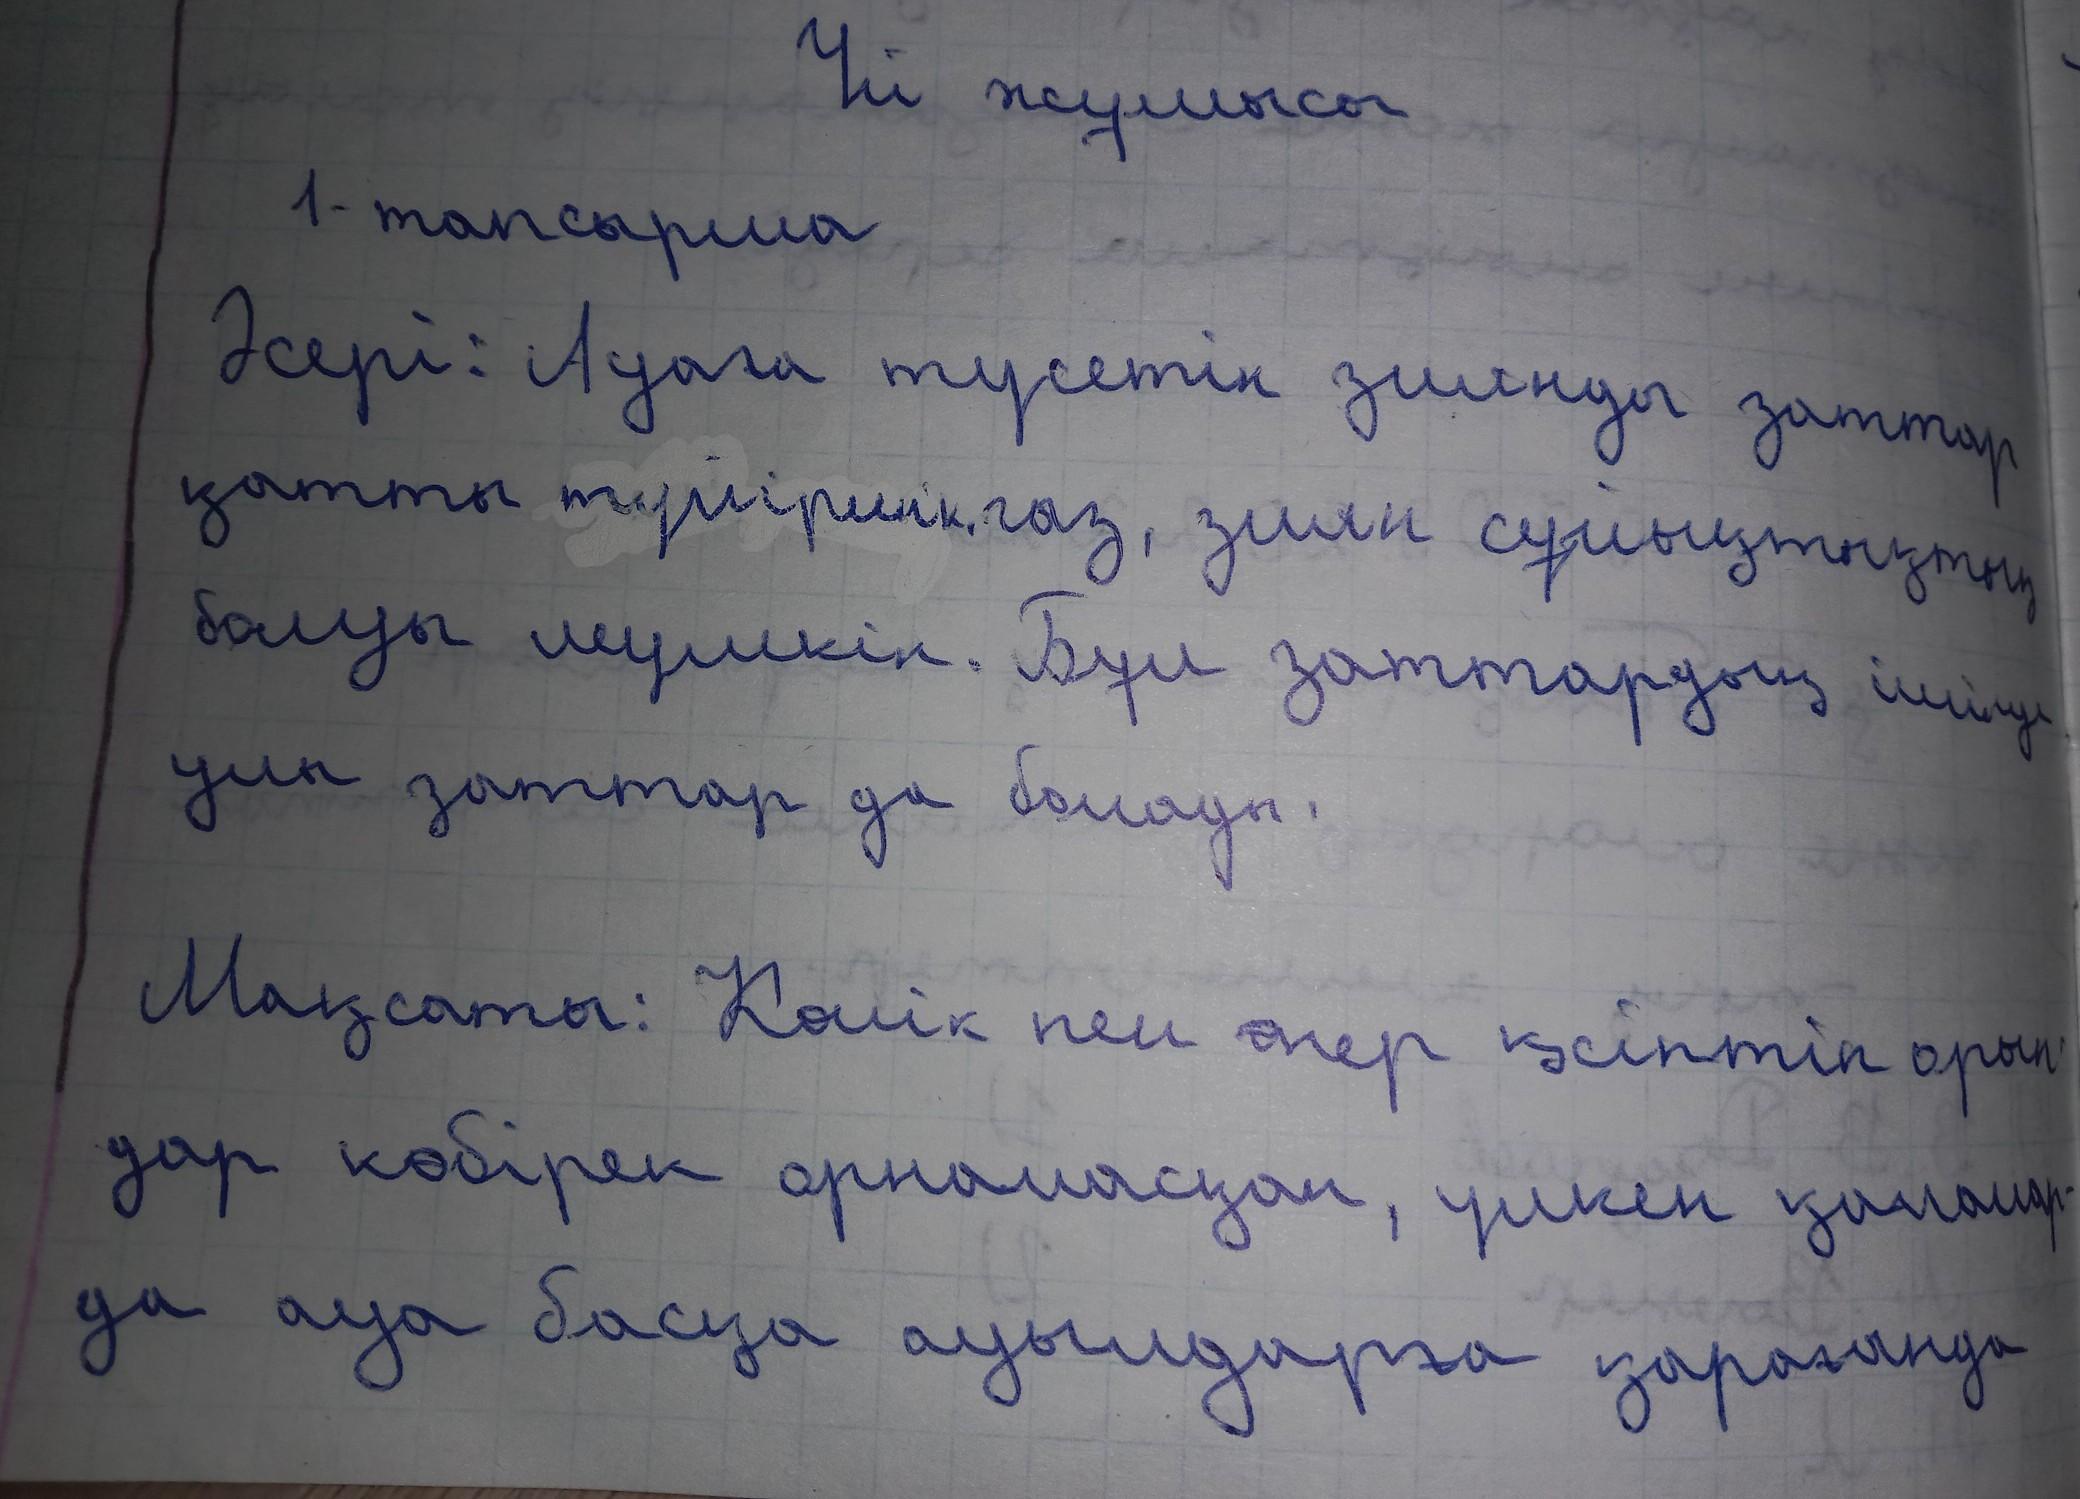 Үй жұмысы
1-тапсырма
Әсері: Ауаға түсетін зиянды заттар
қатты түйіршік, газ, зиян сұйықтықтың
болуы мүмкін. Бұл заттардың ішінде
улы заттар да болады.
Мақсаты: Көлік пен өнер кәсіптік орын-
дар көбірек орналасқан, үлкен қалалар-
да ауа басқа ауылдарға қарағанда